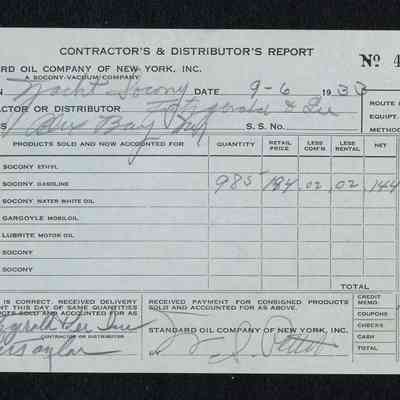 CONTRACTOR'S & DISTRIBUTOR'S REPORT
No 4
RD OIL COMPANY OF NEW YORK, INC.
A SOCONY-VACUUM COMPANY
N Yacht Socony DATE 9-6 1933
ROUTE
CTOR OR DISTRIBUTOR Fitzgerald & Lee
EQUIPT.
S Alex Bay N.Y. S. S. No.
METHOD
PRODUCTS SOLD AND NOW ACCOUNTED FOR QUANTITY RETAIL PRICE LESS CONS'G. LESS RENTAL NET
SOCONY ETHYL
SOCONY GASOLINE 985 184 .02 .02 .144
SOCONY WATER WHITE OIL
GARGOYLE MOBILOIL
LUBRITE MOTOR OIL
SOCONY
SOCONY
TOTAL
IS CORRECT. RECEIVED DELIVERY
NT THIS DAY OF SAME QUANTITIES
CTS SOLD AND ACCOUNTED FOR AS
CONTRACTOR OR DISTRIBUTOR
RECEIVED PAYMENT FOR CONSIGNED PRODUCTS
SOLD AND ACCOUNTED FOR AS ABOVE.
STANDARD OIL COMPANY OF NEW YORK, INC.
CREDIT MEMO
COUPONS
CHECKS
CASH
TOTAL